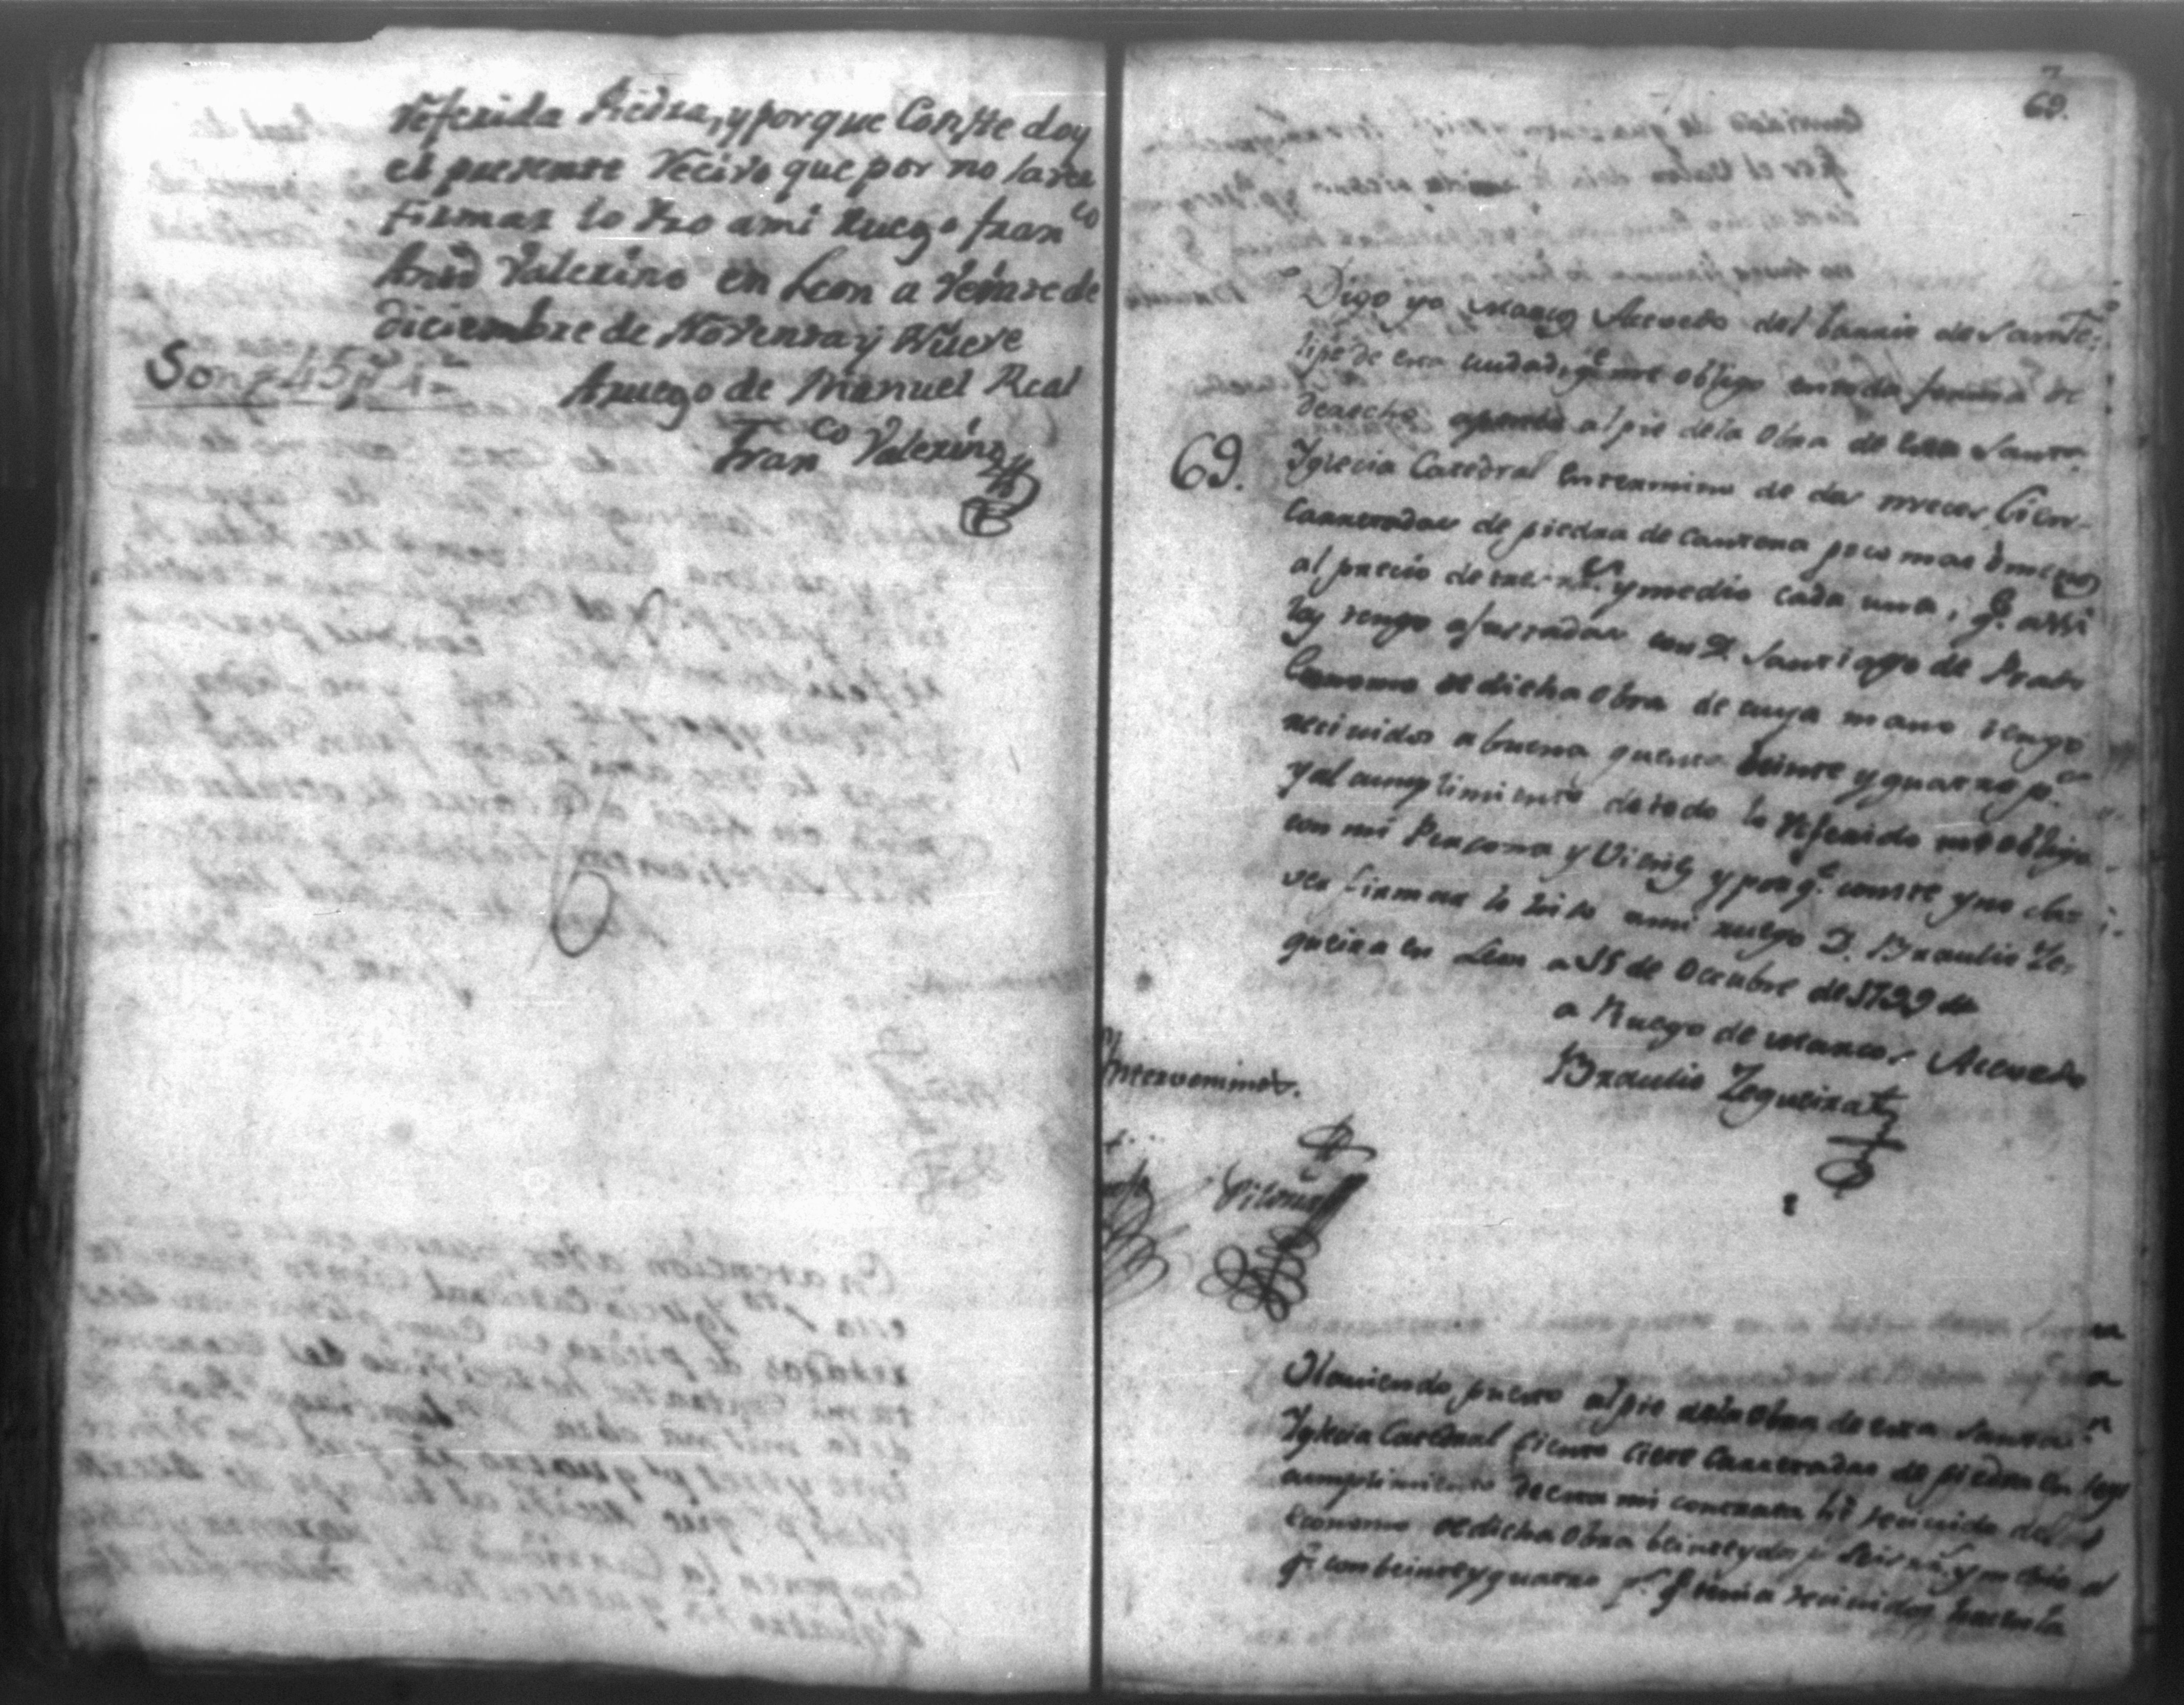 referida Piedra, y porque Conste doy
el presente Recivo que por no saver
Firmar lo hzo ami Ruego fran.co
Anto Valerino en Leon a veinte de
diciembre de Noventa y Nueve
Son 45 p.s
Aruego de Manuel Real
Fran.co Valerino
69.
Digo yo Marcos Acevedo del barrio de San Fe-
lipe de esta ciudad, q.e me obligo en toda forma de
derecho aponer al pie dela Obra de esta Santa
69.
Iglecia Catedral en termino de dos meces, Cien
Carretadas de piedra de Cantera poco mas ò menos
al precio de tres r.s y medio cada una, q.e assi
las tengo ajustadas con D.n Santiago de Prado
Econome de dicha Obra de cuya mano tengo
recividos a buena quenta beinte y quatro p.s
y al cumplimiento de todo lo referido me obligo
con mi Percona y Vienes y por q.e conste y no sa-
ver firmar lo hiso ami ruego D. Braulio Ze-
queira en Leon a 15 de Octubre de 1799
a Ruego de Marcos Acevedo
Braulio Zequeira
Intervenimos.
Viloria
Haviendo puesto al pie dela Obra de esta Santa
Iglecia Catedral Ciento ciete Carretadas de piedra en
cumplimiento de esta mi contrata hè recivido del
Economo de dicha Obra beinte y dos p.s seis r.s y medio
q.e con beinte y quatro p.s q.e tenia recividos hacen la